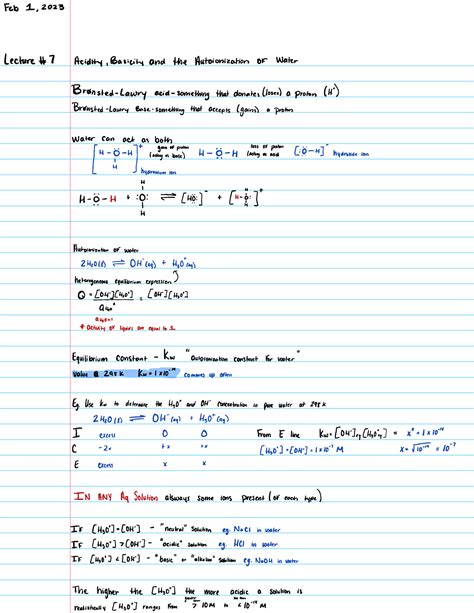 Feb 1, 2023
Lecture #7 Acidity, Basicity and the Autoionization of Water
Brønsted-Lowry acid - something that donates (loses) a proton (H⁺)
Brønsted-Lowry Base - something that accepts (gains) a proton
Water can act as both
[H-O-H]⁺ gain of proton (acting as base) H-O-H loss of proton (acting as acid) [:O-H]⁻ hydroxide ion
H
hydronium ion
H-O-H + :O: ⇌ [HO:]⁻ + [H-O-H]⁺
Autoionization of water
2H₂O(l) ⇌ OH⁻(aq) + H₃O⁺(aq)
heterogeneous equilibrium expression
Q = [OH⁻][H₃O⁺] = [OH⁻][H₃O⁺]
* Activity of liquids are equal to 1
Equilibrium constant - Kw "autoionization constant for water"
value @ 298K Kw = 1 x 10⁻¹⁴ comes up often
Eg. Use Kw to determine the H₃O⁺ and OH⁻ concentration in pure water at 298K
2H₂O(l) ⇌ OH⁻(aq) + H₃O⁺(aq)
I excess 0 0 From E line Kw = [OH⁻]eq[H₃O⁺]eq = x² = 1 x 10⁻¹⁴
C -2x +x +x [H₃O⁺] = [OH⁻] = 1 x 10⁻⁷ M x = √10⁻¹⁴ = 10⁻⁷
E excess x x
IN ANY Aq Solution always some ions present (of each type)
IF [H₃O⁺] = [OH⁻] - "neutral" solution eg. NaCl in water
IF [H₃O⁺] > [OH⁻] - "acidic" solution eg. HCl in water
IF [H₃O⁺] < [OH⁻] - "basic" or "alkaline" solution eg. NaOH in water
The higher the [H₃O⁺] the more acidic a solution is
realistically [H₃O⁺] ranges from > 10M to < 10⁻¹⁴ M